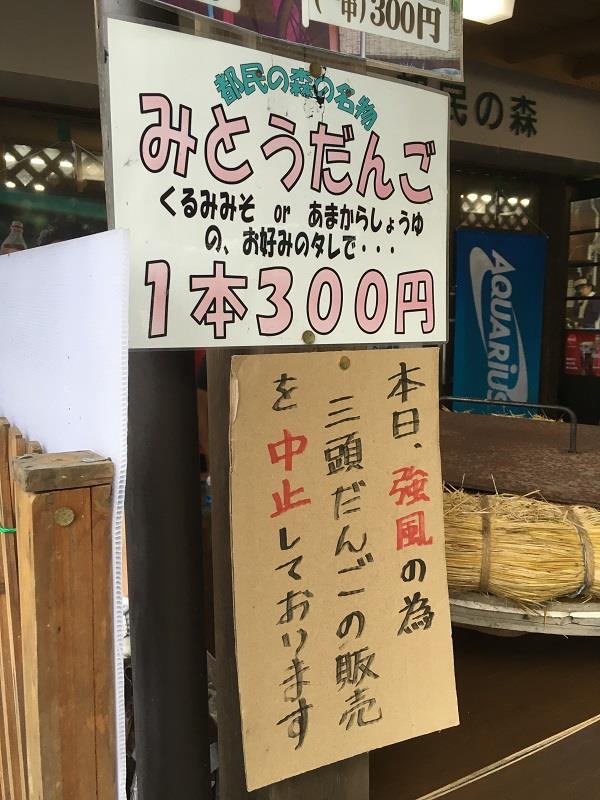 (一串)300円
都民の森の名物
みとうだんご
くるみみそ or あまからしょうゆ
の、お好みのタレで・・・
1本300円
本日、強風の為
三頭だんごの販売
を中止しております
民の森
AQUARIUS